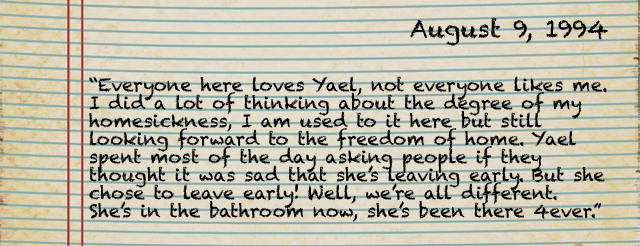 August 9, 1994
"Everyone here loves Yael, not everyone likes me.
I did a lot of thinking about the degree of my
homesickness, I am used to it here but still
looking forward to the freedom of home. Yael
spent most of the day asking people if they
thought it was sad that she's leaving early. But she
chose to leave early! Well, we're all different.
She's in the bathroom now, she's been there 4ever."